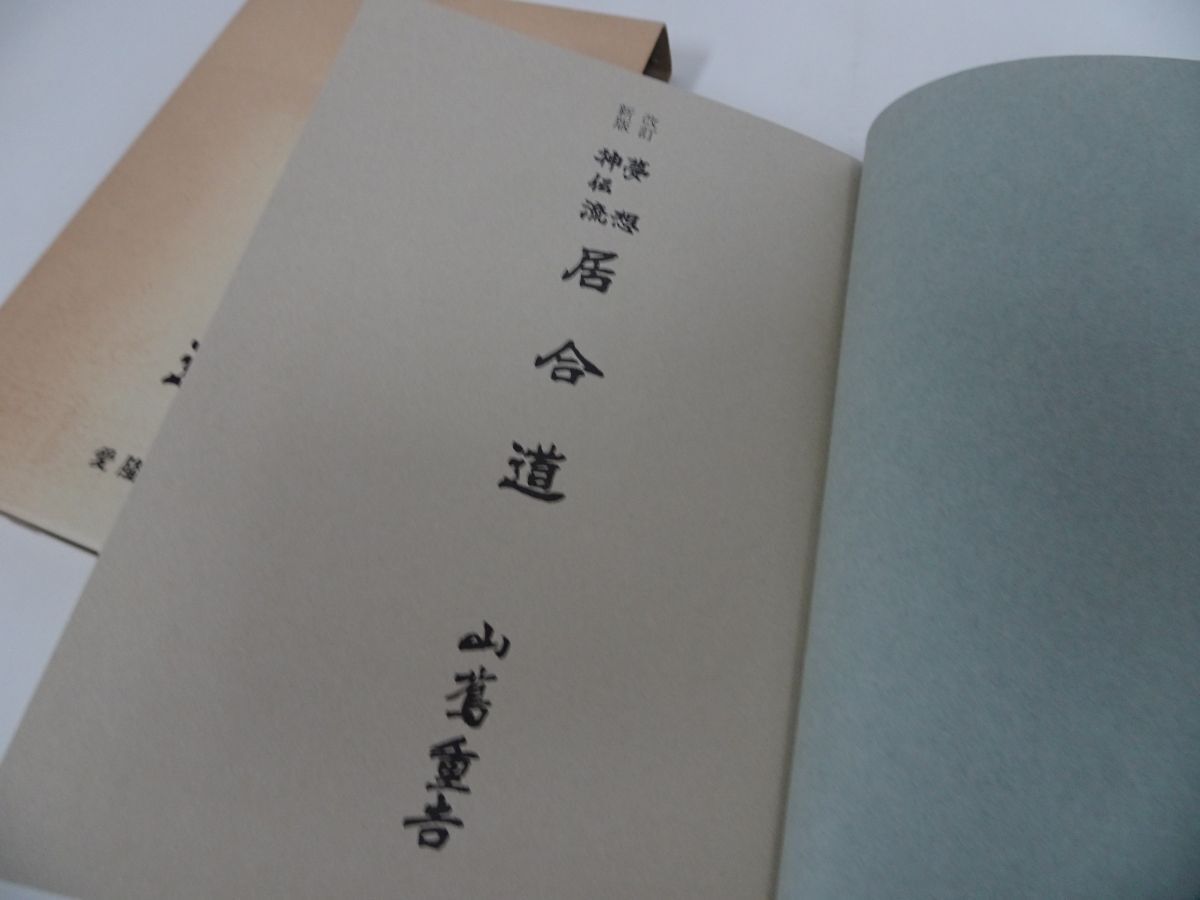 改訂
新版
夢想
神伝流
居合道
山蔦重吉
愛隆